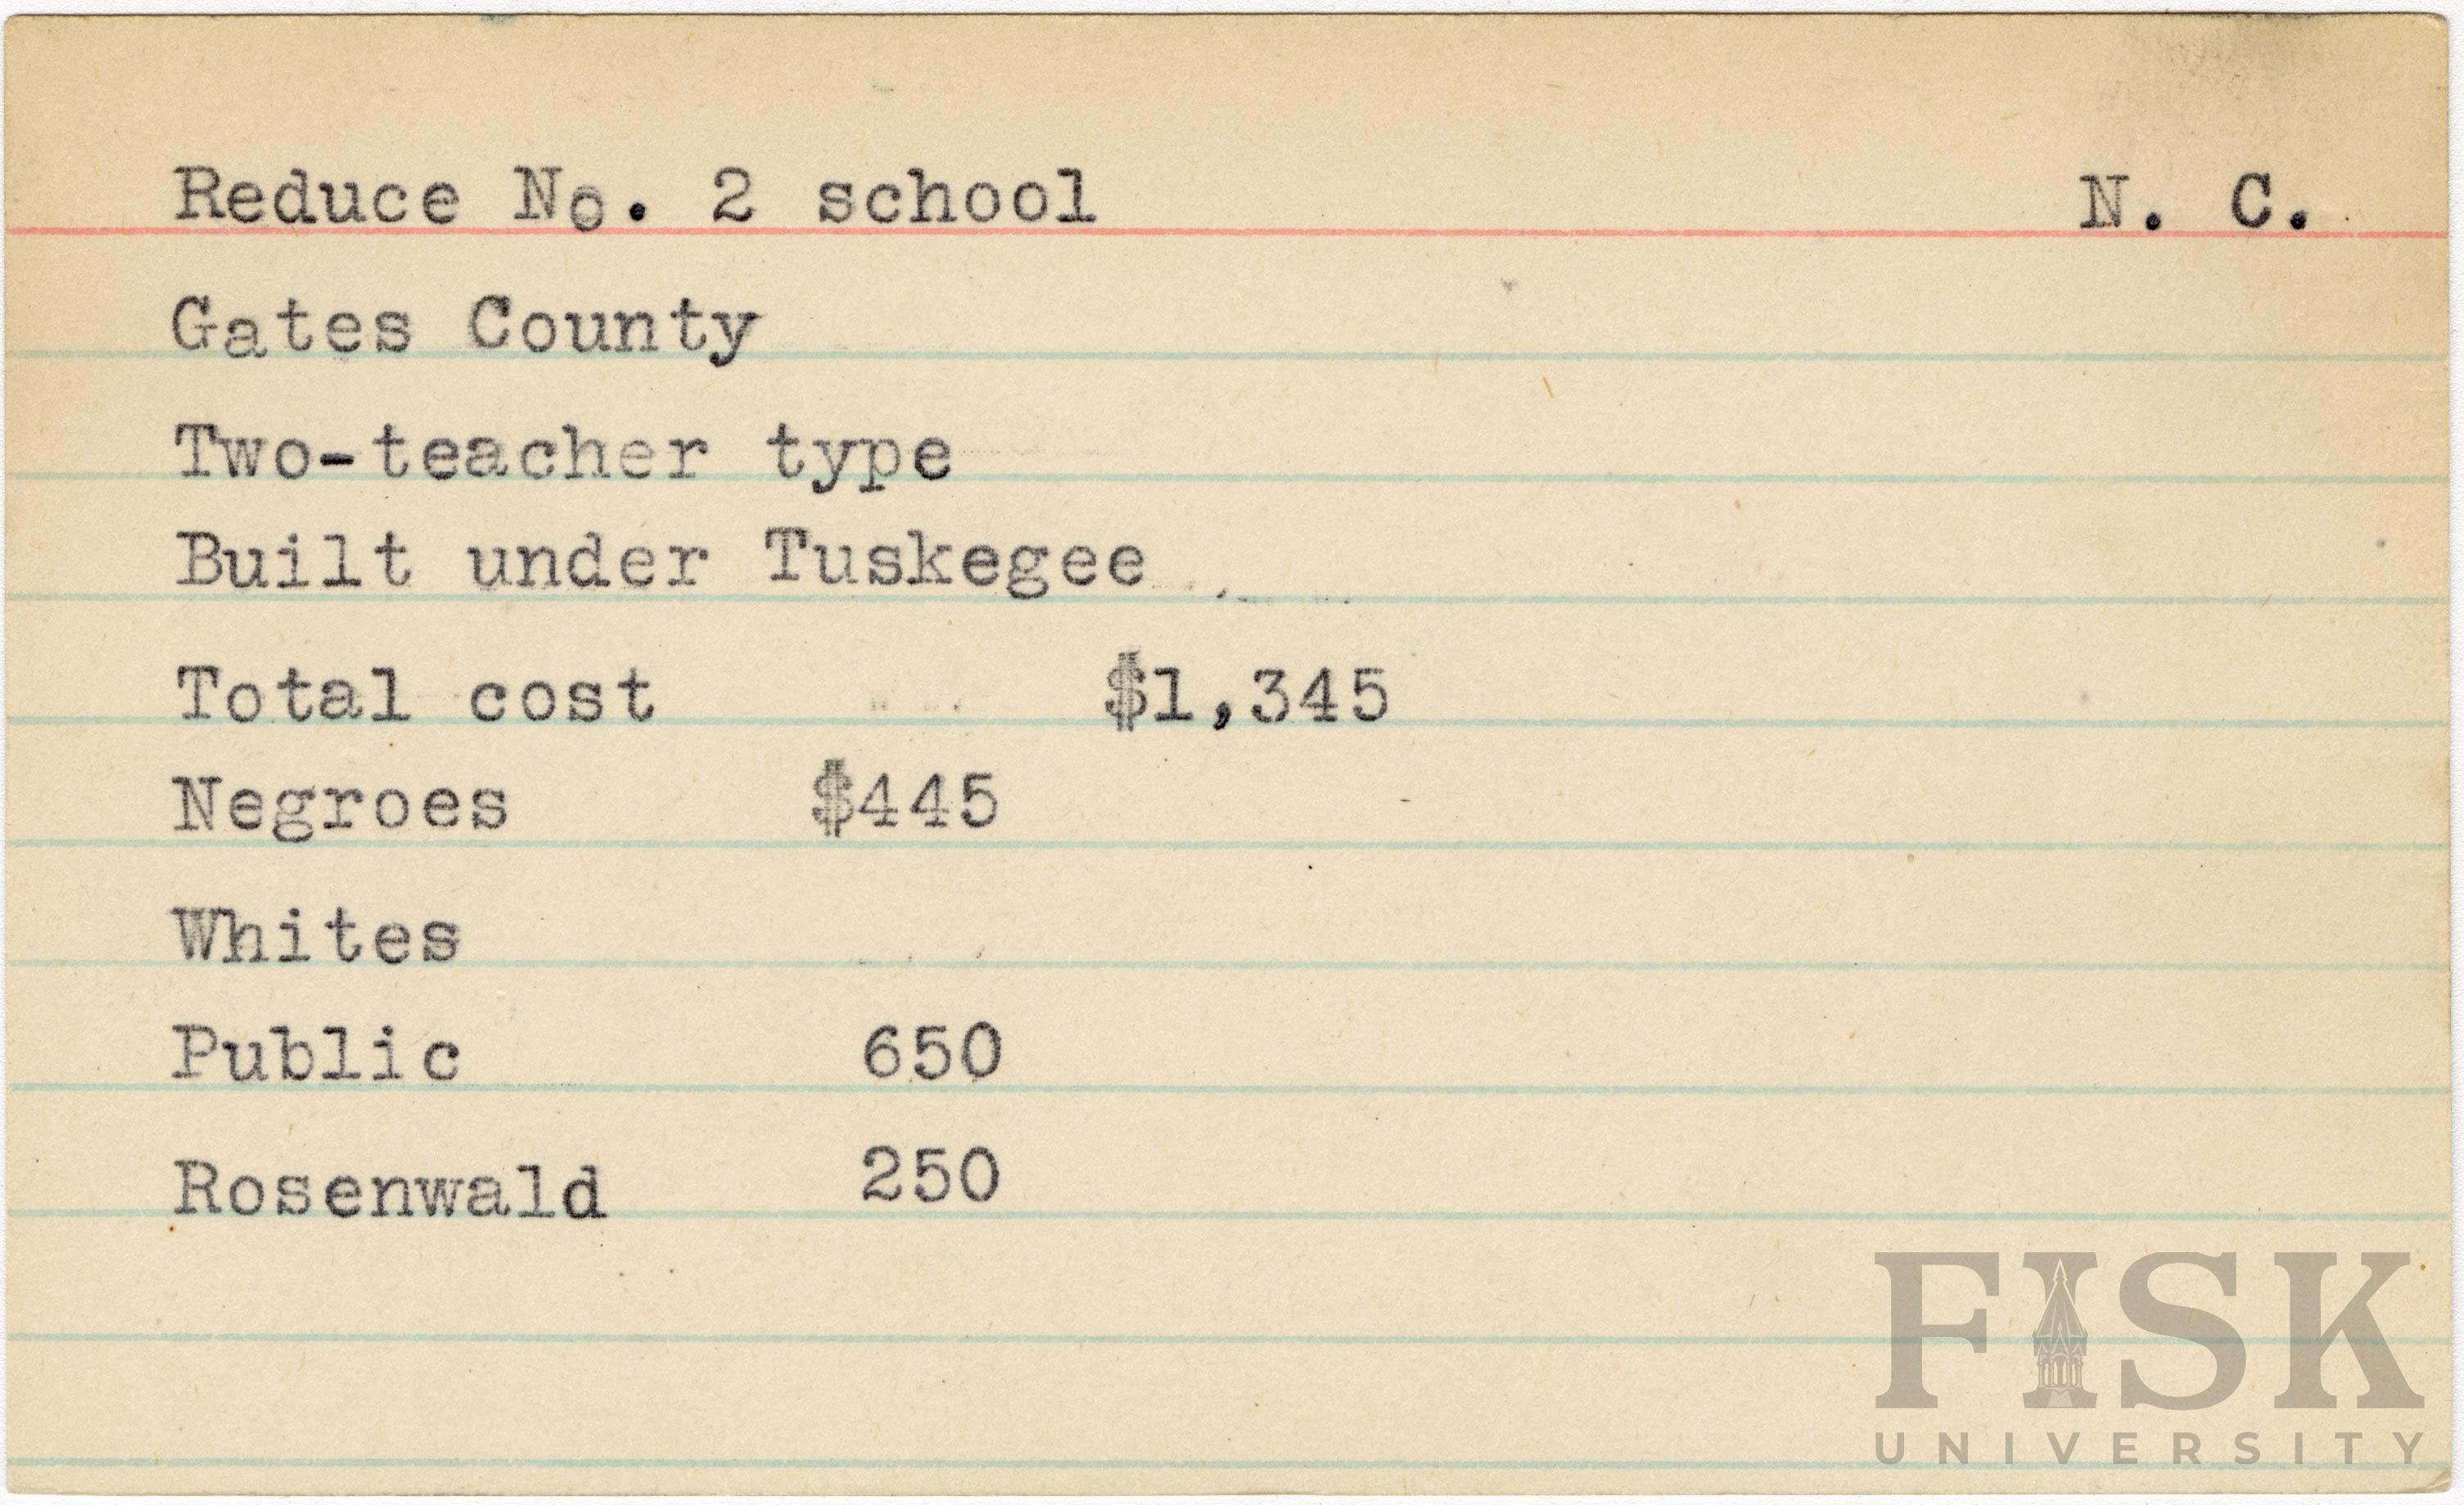 Reduce No. 2 school N. C.
Gates County
Two-teacher type
Built under Tuskegee
Total cost $1,345
Negroes $445
Whites
Public 650
Rosenwald 250
FISK
UNIVERSITY